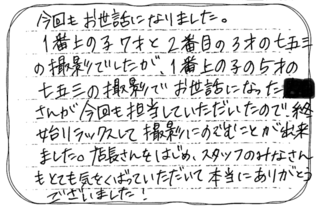 今回もお世話になりました。
1番上の子7才と2番目の3才の七五三
の撮影でしたが、1番上の子の5才の
七五三の撮影でお世話になった
さんが今回も担当していただいたので、終
始リラックスして撮影にのぞむことが出来
ました。店長さんをはじめ、スタッフのみなさん
もとても気をくばっていただいて本当にありがとう
ございました!